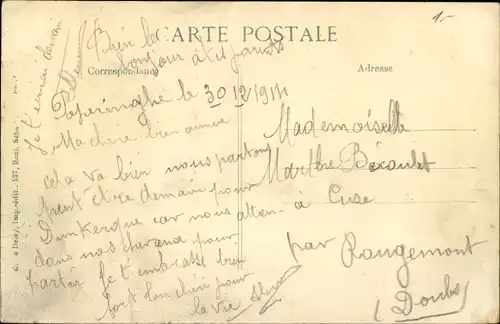 CARTE POSTALE
Correspondance
Adresse
Bien le
bonjour à tes parents
Je t'écrirai demain
Poperinghe le 30/12/1914
Ma chère bien aimée
cela va bien nous partons
peut être demain pour
Dunkerque car nous atten-
dans nos chevaux pour
partir Je t'embrasse bien
fort ton chéri pour
la vie
Mademoiselle
Marthe
à Cuse
par Rougemont
(Doubs)